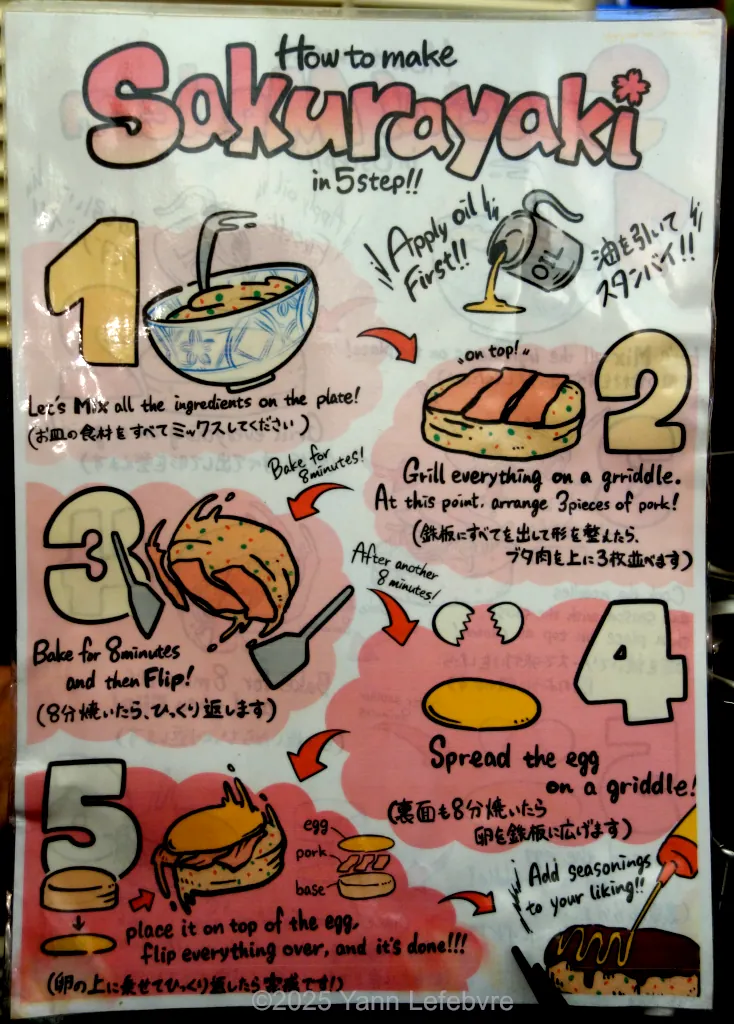 How to make
Sakurayaki
in 5step!!
Apply oil
First!!
OIL
油を引いて
スタンバイ!!
1
Let's Mix all the ingredients on the plate!
(お皿の食材をすべてミックスしてください)
on top!
2
Grill everything on a grriddle.
At this point, arrange 3pieces of pork!
(鉄板にすべてを出して形を整えたら、
ブタ肉を上に3枚並べます)
Bake for
8minutes!
3
Bake for 8minutes
and then Flip!
(8分焼いたら、ひっくり返します)
After another
8 minutes!
4
Spread the egg
on a griddle!
(裏面も8分焼いたら
卵を鉄板に広げます)
5
egg
pork
base
place it on top of the egg,
flip everything over, and it's done!!!
(卵の上に乗せてひっくり返したら完成です!)
Add seasonings
to your liking!!
©2025 Yann Lefebvre